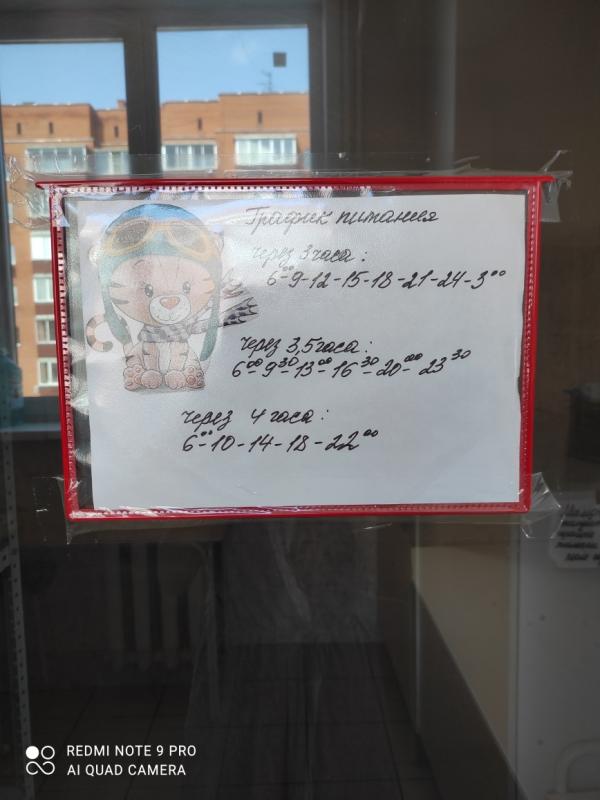 График питания
через 3 часа:
6⁰⁰-9-12-15-18-21-24-3⁰⁰
через 3,5 часа:
6⁰⁰-9³⁰-13⁰⁰-16³⁰-20⁰⁰-23³⁰
через 4 часа:
6⁰⁰-10-14-18-22⁰⁰
REDMI NOTE 9 PRO
AI QUAD CAMERA